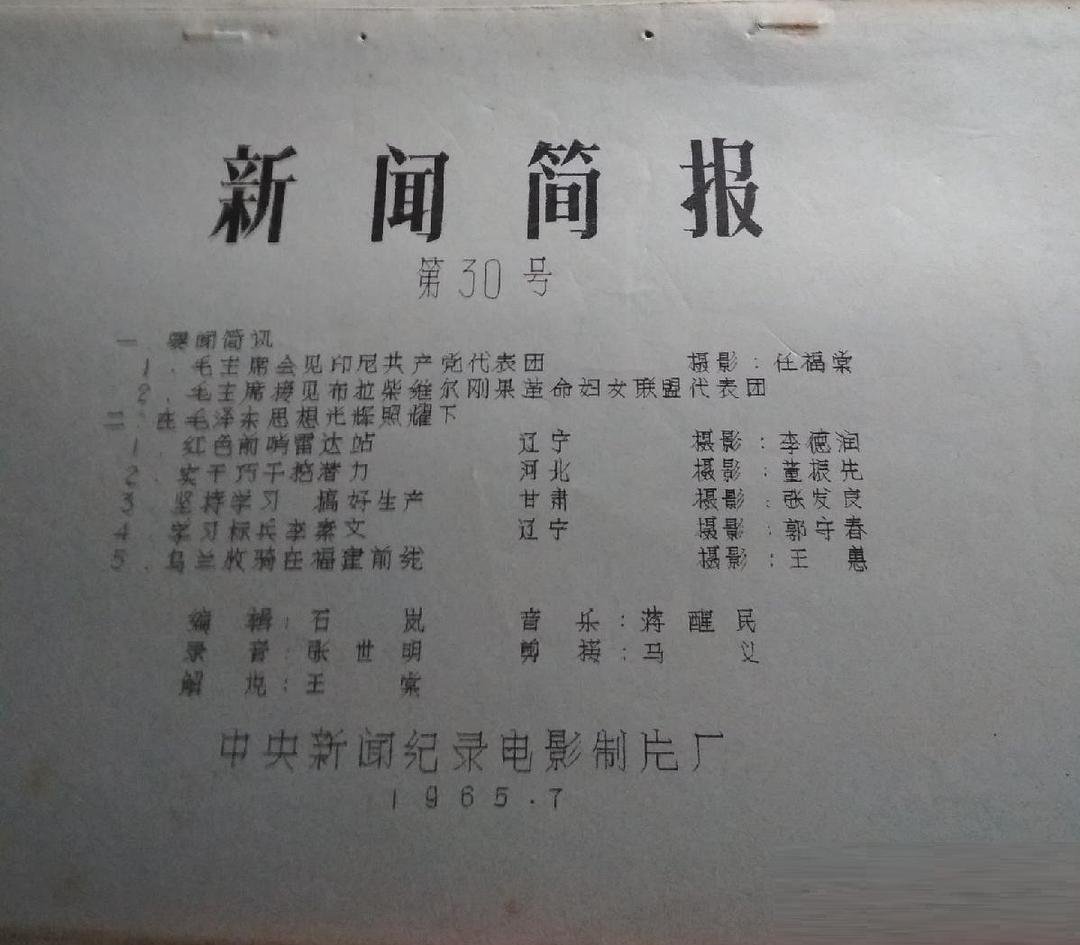 新闻简报
第30号
一 要闻简讯
1. 毛主席会见印尼共产党代表团 摄影:任福棠
2. 毛主席接见布拉柴维尔刚果革命妇女联盟代表团
二、在毛泽东思想光辉照耀下
1. 红色前哨雷达站 辽宁 摄影:李德润
2. 实干巧干挖潜力 河北 摄影:董振先
3 坚持学习 搞好生产 甘肃 摄影:张发良
4 学习标兵李素文 辽宁 摄影:郭守春
5. 乌兰牧骑在福建前线 摄影:王 惠
编 辑:石 岚 音 乐:蒋醒民
录 音:张世明 剪 接:马 义
解 说:王 棠
中央新闻纪录电影制片厂
1965.7